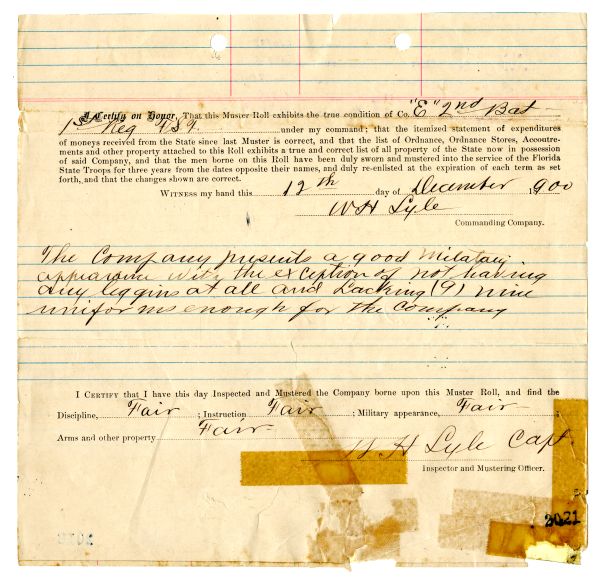 I Certify on Honor, That this Muster Roll exhibits the true condition of Co. "E" 2nd Bat
1st Reg under my command; that the itemized statement of expenditures
of moneys received from the State since last Muster is correct, and that the list of Ordnance, Ordnance Stores, Accoutre-
ments and other property attached to this Roll exhibits a true and correct list of all property of the State now in possession
of said Company, and that the men borne on this Roll have been duly sworn and mustered into the service of the Florida
State Troops for three years from the dates opposite their names, and duly re-enlisted at the expiration of each term as set
forth, and that the changes shown are correct.
WITNESS my hand this 12th day of December 1900
W H Lyle
Commanding Company.
The Company presents a good Military
appearance with the exception of not having
any leggins at all and Lacking (9) nine
uniforms enough for the Company
I CERTIFY that I have this day Inspected and Mustered the Company borne upon this Muster Roll, and find the
Discipline, Fair ; Instruction Fair ; Military appearance, Fair ;
Arms and other property Fair
W H Lyle Capt
Inspector and Mustering Officer.
2021